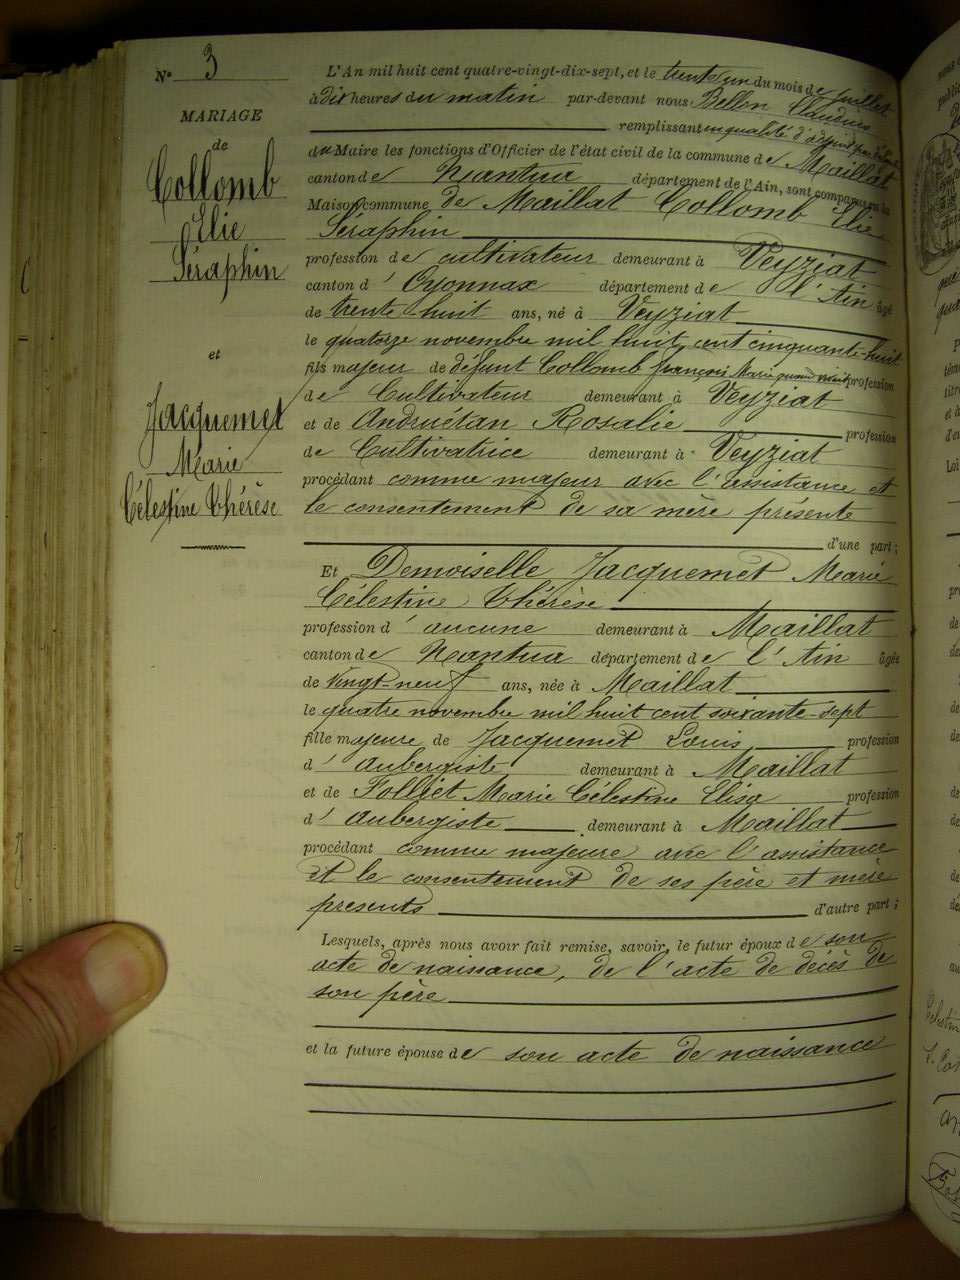 N° 3
MARIAGE
de
Collomb
Elie
Séraphin
et
Jacquemet
Marie
Célestine Thérèse
L'An mil huit cent quatre-vingt-dix-sept, et le trente un du mois de juillet
à dix heures du matin par-devant nous Bellon Claudius
remplissant en qualité d'adjoint
du Maire les fonctions d'Officier de l'état civil de la commune de Maillat
canton de Nantua département de l'Ain, sont comparus en la
Maison commune de Maillat Collomb Elie
Séraphin
profession de cultivateur demeurant à Veyziat
canton d'Oyonnax département de l'Ain âgé
de trente huit ans, né à Veyziat
le quatorze novembre mil huit cent cinquante-huit
fils majeur de défunt Collomb françois Marie quand vivait profession
de Cultivateur demeurant à Veyziat
et de Andruétan Rosalie profession
de Cultivatrice demeurant à Veyziat
procédant comme majeur avec l'assistance et
le consentement de sa mère présente
d'une part;
Et Demoiselle Jacquemet Marie
Célestine Thérèse
profession d'aucune demeurant à Maillat
canton de Nantua département de l'Ain âgée
de vingt-neuf ans, née à Maillat
le quatre novembre mil huit cent soixante-sept
fille majeure de Jacquemet Louis profession
d'aubergiste demeurant à Maillat
et de Folliet Marie Célestine Elisa profession
d'aubergiste demeurant à Maillat
procédant comme majeure avec l'assistance
et le consentement de ses père et mère
présents d'autre part;
Lesquels, après nous avoir fait remise, savoir, le futur époux de son
acte de naissance, de l'acte de décès de
son père
et la future épouse de son acte de naissance